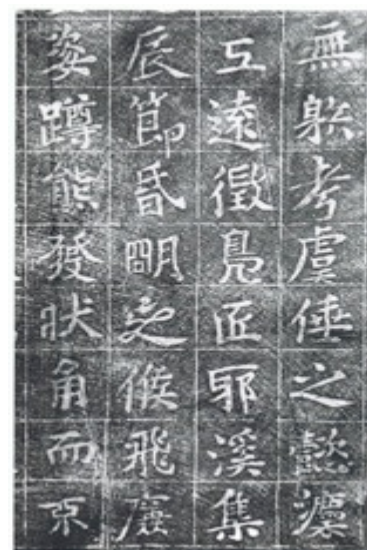 無射考虞倕之懿
工遠徵鳧匠耶溪集
辰節昏明之候飛廉
姿蹲熊發狀角而